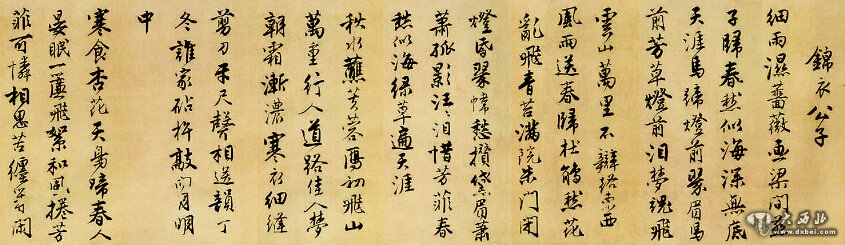 錦衣公子
細雨濕薔薇畫梁間燕
子歸春愁似海深無底
天涯馬蹄燈前翠眉馬
前芳草燈前淚夢魂飛
雲山萬里不辨路東西
風雨送春歸杜鵑愁花
亂飛青苔滿院朱門閉
燈昏翠幃愁攢黛眉蕭
蕭孤影汪汪淚惜芳菲春
愁似海綠草遍天涯
秋水蘸芙蓉雁初飛山
萬重行人道路佳人夢
朝霜漸濃寒衣細縫
剪刀牙尺聲相送韻丁
冬誰家砧杵敲向月明
中
寒食杏花天鳥啼春人
晏眠一簾飛絮和風捲芳
菲可憐相思苦纏等閒
大西北
www.dxbei.com